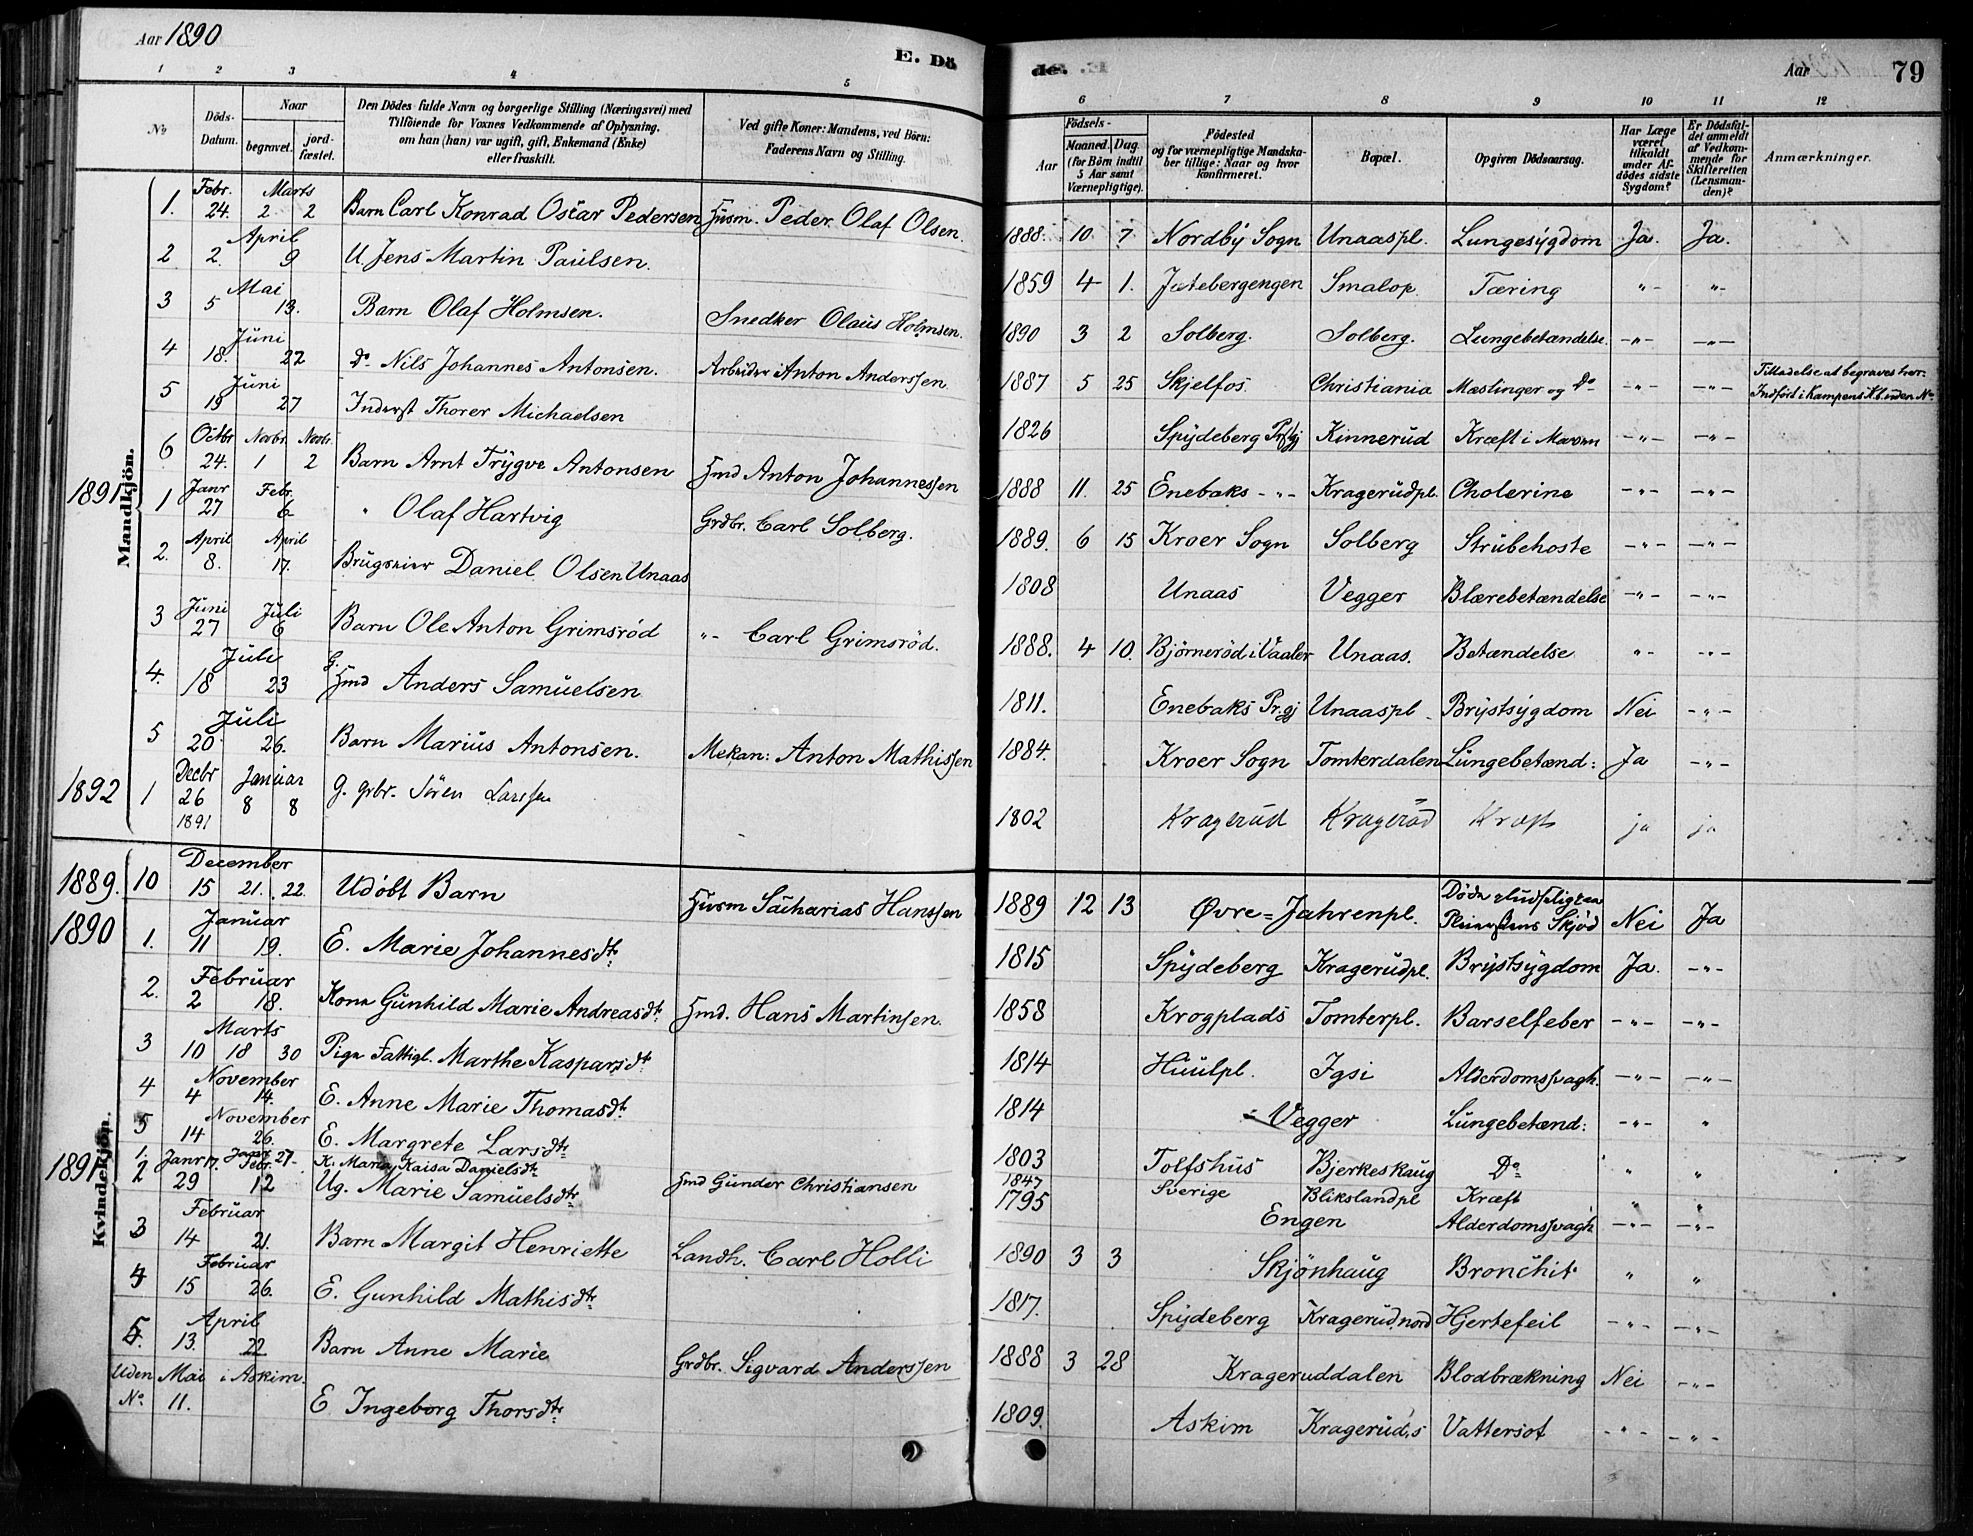 Aar 1890
E. Dö
de.
Aar
79
1 2 3 4 5 6 7 8 9 10 11 12
No
Döds-Datum.
Naar
begravet.
jordfæstet.
Den Dödes fulde Navn og borgerlige Stilling (Næringsvei) med
Tilföiende for Voxnes Vedkommende af Oplysning,
om han (hun) var ugift, gift, Enkemand (Enke)
eller fraskilt.
Ved gifte Koner: Mandens, ved Börn:
Faderens Navn og Stilling.
Födsels-
Aar
Maaned. Dag.
(for Börn indtil
5 Aar samt
Værnepligtige).
Födested
og for værnepligtige Mandskaber tillige: Naar og hvor
konfirmeret.
Bopæl.
Opgiven Dödsaarsag.
Har Læge
været
tilkaldt
under Afdödes sidste
Sygdom?
Er Dödsfaldet anmeldt
af Vedkommende for
Skifteretten
(Lensmanden)?
Anmærkninger.
Mandkjön.
1. Febr. 24. Marts 2 2 Barn Carl Konrad Oscar Pedersen Husm. Peder Olaf Olsen. 1888. 10 7 Nordby Sogn Unaaspl. Lungesygdom Ja. Ja.
2 2. April 9 U. Jens Martin Paulsen. 1859 4 1. Smalop Tæring " - " -
3 5 Mai 13. Barn Olaf Holmsen. Snedker Olaus Holmsen. 1890 3 2 Solberg. Solberg. Lungebetændelse. - " - - " -
4 18. Juni 22 Do Nils Johannes Antonsen. Arbeider Anton Anderssen 1887 5 25 Skjelfos Christiania Mæslinger og Do - " - - " - Tilladelse at begraves her. Indfört i Kampens K.b. uden No
5 19 Juni 27 Inderst Thorer Michaelsen 1826 Spydeberg Prgj Kinnerud Kræft i Maven - " - - " -
6 Octbr 24. Novbr. 1 Novbr. 2 Barn Arnt Trygve Antonsen Hmd Anton Johannessen 1888 11. 25 Enebaks - " - Kragerudpl. Cholerine - " - - " -
1891 1 Janr 27 Febr. 6 " Olaf Hartvig Grdbr. Carl Solberg. 1889. 6 15 Kroer Sogn Solberg Strubehoste - " - - " -
2. April 8. April 17. Daniel Olsen Unaas 1808 Unaas Vegger Blærebetændelse - " - - " -
3 Juni 27 Juli 6 Barn Ole Anton Grimsröd " - Carl Grimsröd. 1888. 4 10. Björneröd i Vaaler Unaas. Betændelse " - - " -
4. 18 Juli 23 G. Hmd Anders Samuelsen 1811. Enebaks Prgj Unaaspl - Brystsygdom Nei - " -
5 20 Juli 26. Barn Marius Antonsen. Mekan: Anton Mathissen 1884. Kroer Sogn Tomterdalen Lungebetænd: Ja - " -
1892 1 Decbr 26 1891 Januar 8 8 G. grbr. Sören Larssen 1802 Kragerud Kragerød Kræft ja ja
Kvindekjön.
1889. 10 December 15 21. 22. Udöbt Barn Husm Sacharias Hanssen 1889 12 13 Øvre = Jahrenpl. Nei Ja
1890 1. Januar 11 19. E. Marie Johannesdtr 1815 Spydeberg Kragerudpl. Brystsygdom Ja. - " -
2. Februar 2 18. Kone Gunhild Marie Andreasdtr Hmd. Hans Martinsen. 1858 Krogplads Tomterpl. Barselfeber - " - - " -
3 Marts 10 18 30 Pige Fattigl. Marthe Kaspersdtr 1814 Huulpl. Igsi Alderdomssvagh. - " - - " -
4 November 4 14. E. Anne Marie Thomasdtr 1814 Vegger Lungebetænd: - " - "
5 November 14 26. E. Margrete Larsdtr 1803 Tolfshus Bjerkeskaug Do " "
1891 1. Janr 17. Janr 27 - K. Maria Kaisa Danielsdtr Hmd Gunder Christiansen 1847 Sverige Blikslandpl Kræft " "
2 29 Febr. 12 Ug. Marie Samuelsdtr 1795 Engen Alderdomssvagh - " - - " -
3 Februar 14 21. Barn Margit Henriette Landh. Carl Holli 1890 3 3 Skjönhaug Bronchit. " "
4 Februar 15 26. E. Gunhild Mathisdtr 1817. Spydeberg Kragerud, nord Hjertefeil - " - - " -
5. April 13. 22 Barn Anne Marie Grdbr. Sigvard Anderssen 1888 3 28 Krageruddalen Blodbrækning Nei - " -
Uden No Mai 11. i Askim. E Ingeborg Thorsdtr 1809. Askim Kragerud, s Vattersot - " - - " -